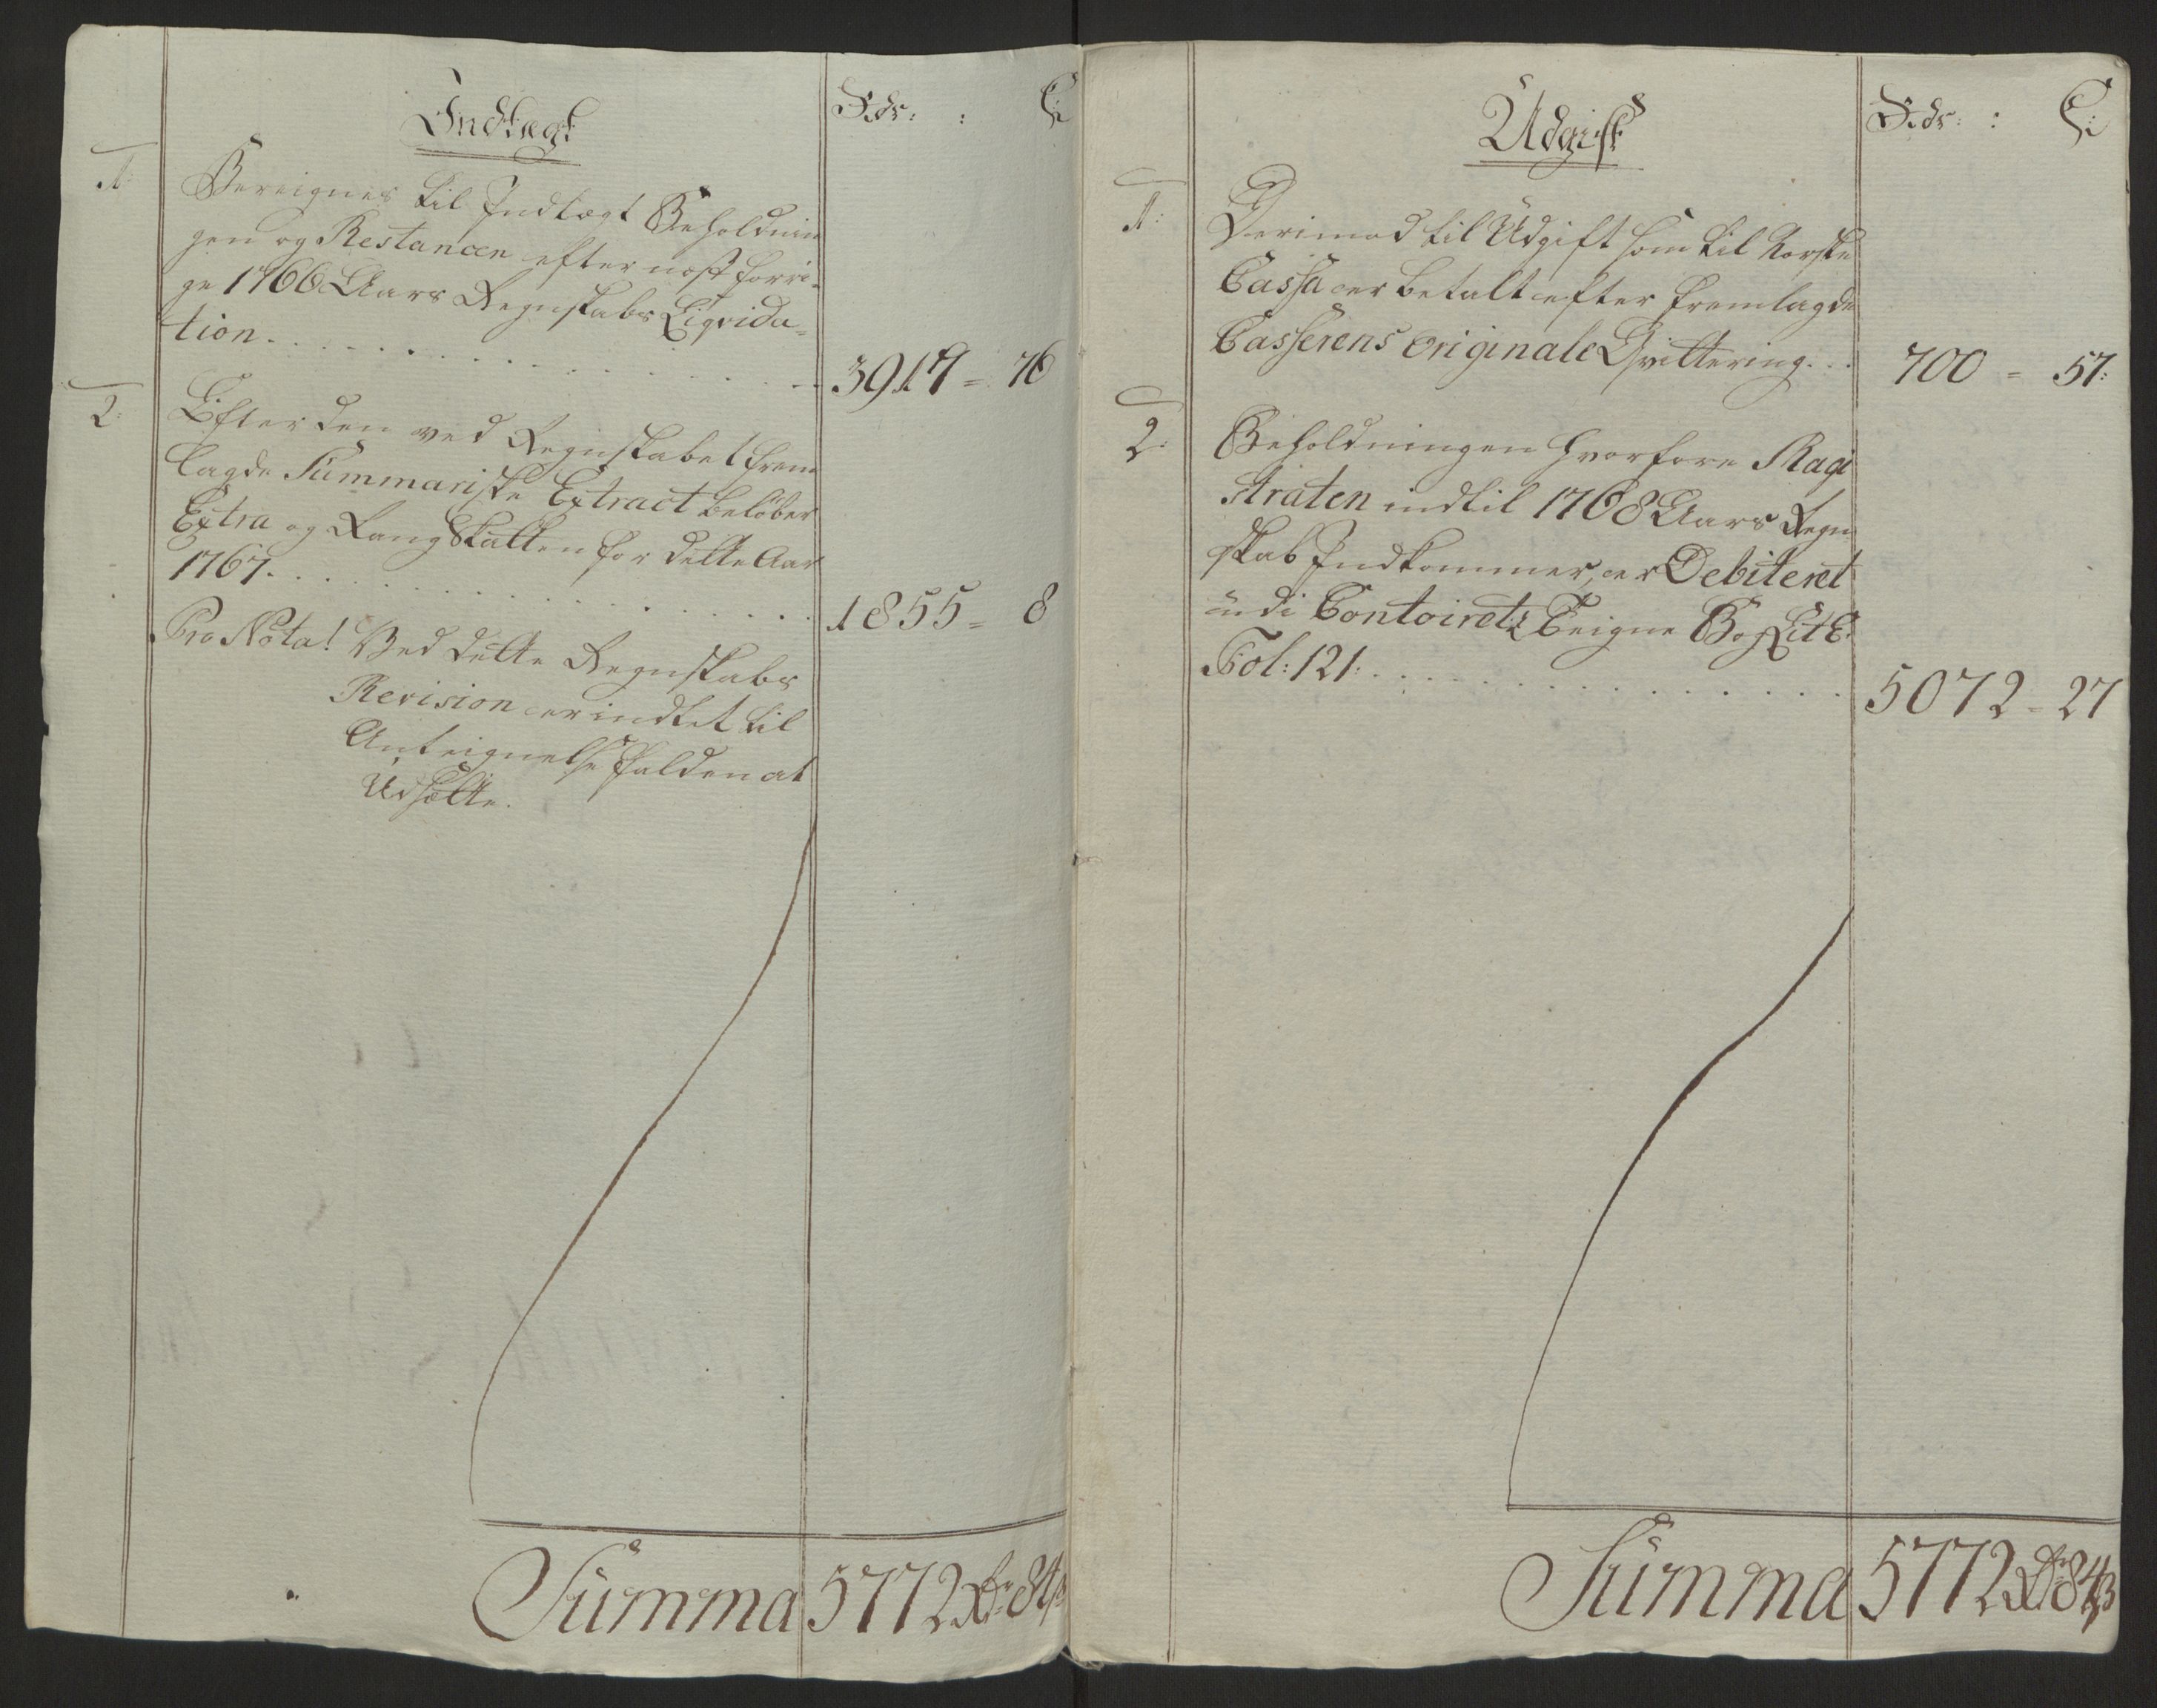 Indtægt
Rdr: : ß:
1:
Bereignes til Indtægt Beholdnin
gen og Restancen efter nest forri-
ge 1766 Aars Regnskabs Liqvida-
tion . . . 3917 = 76
2:
Efter den ved Regnskabet frem
lagde Summariske Extract beløber
Extra og Rang Skatten for dette Aar
1767. . . . 1855 = 8
Pro Nota! Ved dette Regnskabs
Revision er indtet til
Anteignelse falden at
Udsætte.
Summa 5772 Rdr 84 ß
Udgift
Rdr: : ß:
1:
Derimod til Udgift som til Norske
Cassa er betalt efter fremlagde
Casserens originale Qvittering. . . 700 = 57:
2:
Beholdningen hvorfore Magi
straten indtil 1768 Aars Regn
skab Indkommer, er Debiteret
udi Contoirets Teigne Bog Lit E.
Fol: 121: . . . 5072 = 27
Summa 5772 Rdr 84 ß